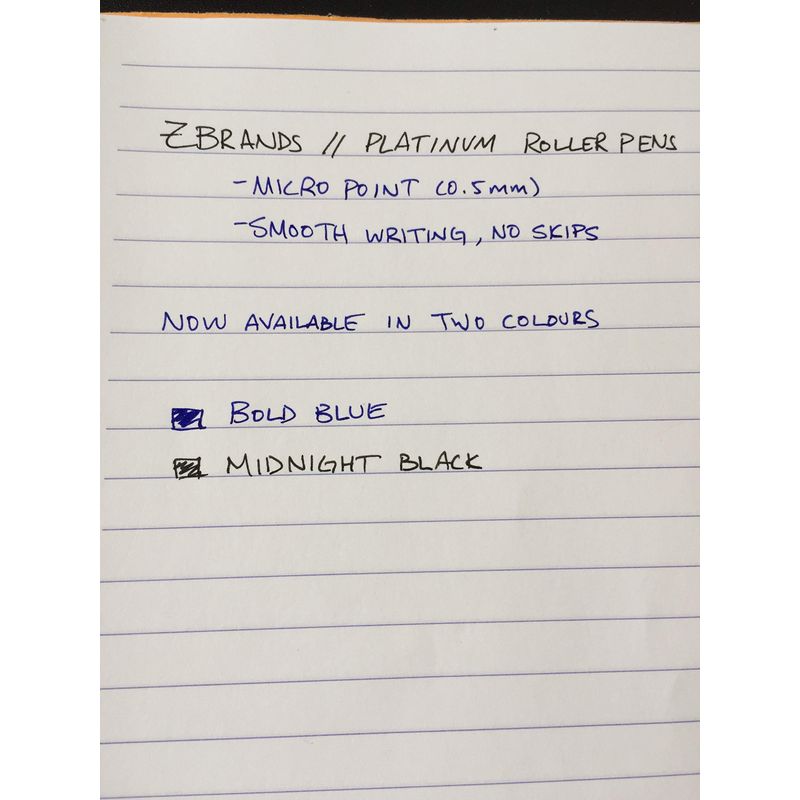 ZBRANDS // PLATINUM ROLLER PENS
-MICRO POINT (0.5mm)
-SMOOTH WRITING, NO SKIPS
NOW AVAILABLE IN TWO COLOURS
BOLD BLUE
MIDNIGHT BLACK